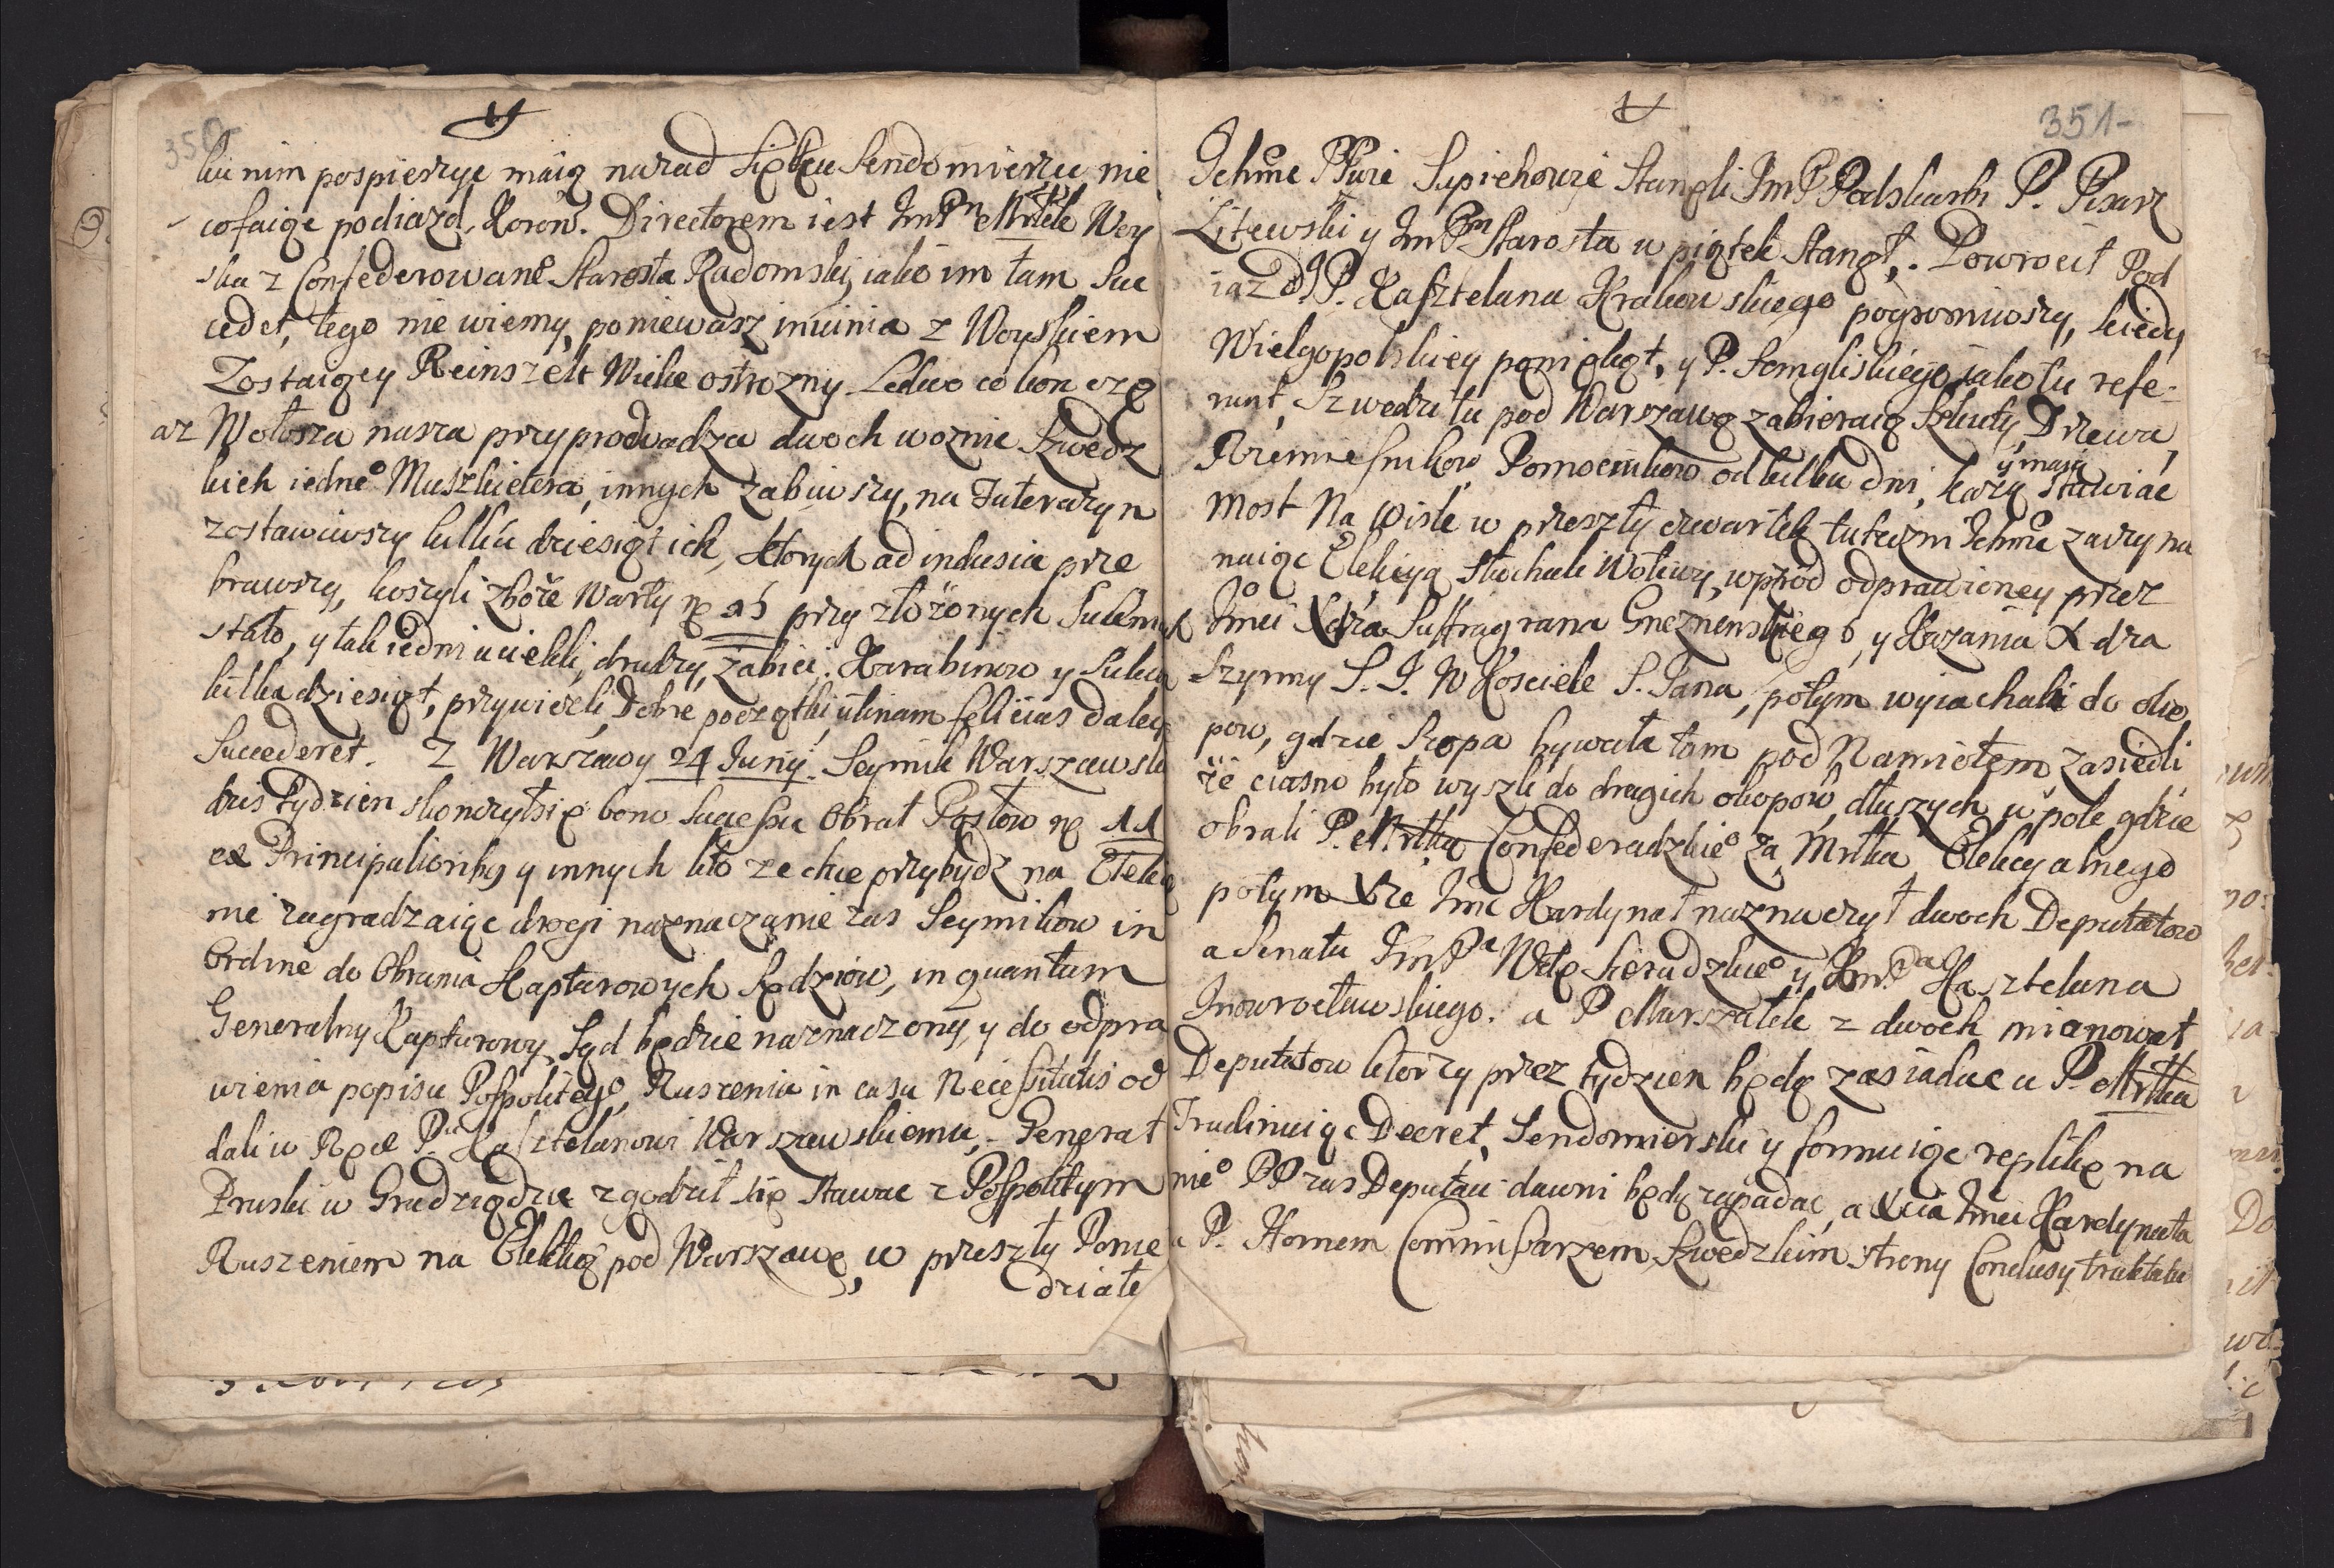 350
ku nim pospieszyc maią nazad Się ku Sendomierzu nie
cofaiąc podiazd. Koron. Directorem iest ImPn Mrłek Woy
ska z Confederowane° Starosta Radomski, iako im tam Suc
cedet, tego nie wiemy, poniewasz z Woyskiem
Zostaiący Reinszelt Wielce ostrozny. Ledwo co kon czę
az Wołosza nasza przyprowadza dwoch woznic Szwedz
kich iedne° Muszkietera, innych zabiwszy, na
zostawiwszy kilku dziesiąt ich, ktorych ad indusia prze
brawszy, koszyli zboże Warty przy złożonych
stało, y tak iedni uciekli, drudzy, zabici. Karabinow y Sukna
kilkadziesiąt, przywiezli, Dobre początki, utinam felicius daley
Succederet. Z Warszawy 24 Iunij. Seymik Warszawski
trus tydzien skonczyłsię bono Sucessu Obrał Posłow nę 11
ex Principalioribus y innych kto zechce przybydz na Elekcą
nie zagradzaiąc drogi naznaczanie zas Seymikow in
Ordine do Obrania Kapturowych Sędziow, in quantum
Generalny Kapturowy Sąd będzie naznaczony, y do odpra
wienia popisu Pospolitego Ruszenia in casu Necessitatis od
dali w Ręce Pu Kasztelanowi Warszawskiemu, - Generał
Pruski w Grudziądzu zgodził się stawac z Pospolitym
Ruszeniem na Elekcą pod Warszawę, w przeszły Ponie
działe
351-
Ichmc PPwie Sapiehowie Stanęli ImP Podskarbi P. Pisarz
Litewski y ImPn Starosta w piątek Stanął. Powrocił Pod
iazd JP. Kasztelana Krakowskiego pogromiwszy, kiedy
Wielgopolskiey poniękąt, y P. iako tu refe-
runt, Szwedzi tu pod Warszawą zabieraią Szkuty, Drzewa,
Rzemiesnikow Pomocnikow od kilku dni, każą y maią stawiac
Most Na Wisle w przeszły czwartek tuteczni Ichmc zaczyna
naiąc Elekcyą słuchali Wotiwy, wprzod odprawioney przez
Imci Xdza Suffragana Gneznenskiego, y Kazania Xdza
Szyrmy S. J. W Kosciele S. Jana, potym wyiachali do oko
pow, gdzie Szopa bywała tam pod Namiotem zasiedli
że ciasno było wyszli do drugich okopow, dłuszych w pole gdzie
obrali P. Mrłka Confederadzkie° za Mrłka Elekcyalnego
potym Xże Imc Kardynał naznaczył dwoch Deputatow
a Senatu ImPa Wdę Sieradzkie° y ImPa Kasztelana
Inowrocławskiego. a P Marszałek z dwoch mianował
Deputatow ktorzy przez tydzien będą zasiadac u P. Mrłka
Trutinuiąc Decret, Sendomierski y formuiąc replikę na
nie° PP zas Deputaci dawni będą zapadac, a Xcia Imci Kardynała
u P. Hornem Commissarzem Szwedzkim strony Conclusy traktatu